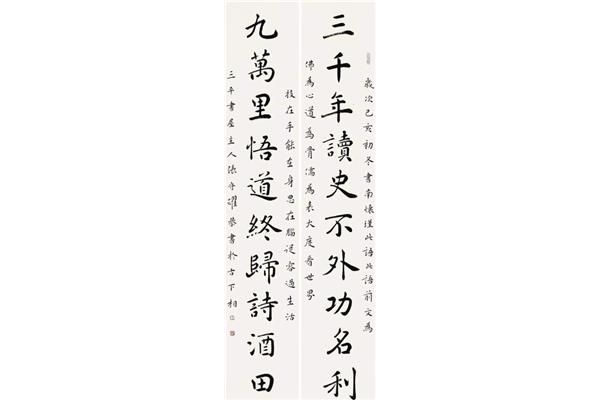 歲次己亥初冬書南懷瑾此語此語前文為
三千年讀史不外功名利
佛為心道為骨儒為表大度看世界
技在手能在身思在腦從容過生活
九萬里悟道終歸詩酒田
三平書屋主人張守恭書於古下相